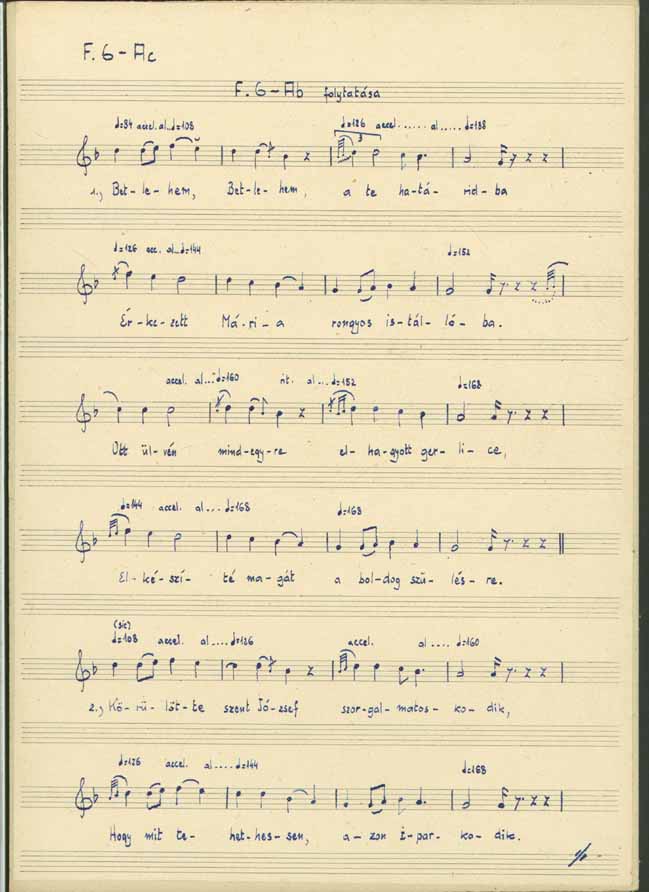 F. 6 - Ac
F. 6 - Ab folytatása
d=84 accel. al...d=108 d=126 accel....... al..... d=138
3
1., Bet-le-hem, Bet-le-hem, a te ha-tá-rid-ba
d=126 acc. al...d=144 d=152
Ér-ke-zett Má-ri-a rongyos is-tál-ló-ba.
accel. al...d=160 rit. al...d=152 d=168
Ott ül-vén mind-egy-re el-ha-gyott ger-li-ce,
d=144 accel. al... d=168 d=168
El-ké-szí-té ma-gát a bol-dog szü-lés-re.
(sic)
d=108 accel. al....d=126 accel. al.... d=160
2., Kö-rü-löt-te szent Jó-zsef szor-gal-matos-ko-dik,
d=126 accel. al....d=144 d=168
Hogy mit te-het-hes-sen, a-zon i-par-ko-dik.